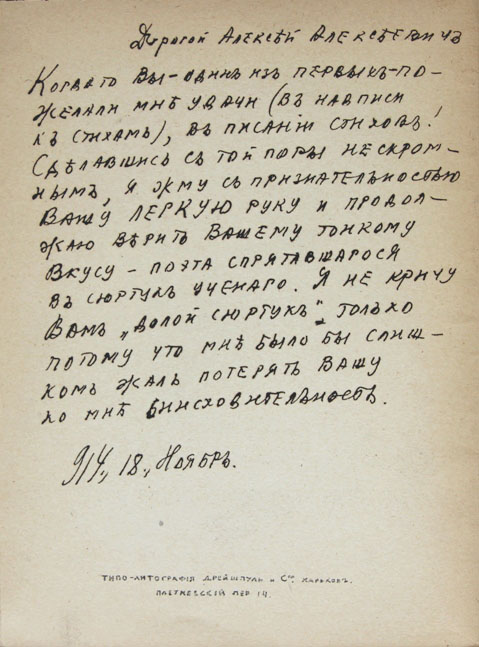 Дорогой Алексѣй Алексѣевичъ
Когда то вы-одинъ изъ первыхъ-по-
желали мнѣ удачи (въ надписи
къ стихамъ), въ писаніи стиховъ!
Сдѣлавшись съ той поры нескром-
нымъ, я жму съ признательностью
Вашу легкую руку и продол-
жаю вѣрить Вашему тонкому
вкусу - поэта спрятавшагося
въ сюртукъ ученаго. Я не кричу
Вамъ „долой сюртукъ" только
потому что мнѣ было бы слиш-
комъ жаль потерять Вашу
ко мнѣ снисходительность.
914., 18., Ноябрь.
Типо-литографія Дрейшпуль и С-нъ Харьковъ.
пер 14.